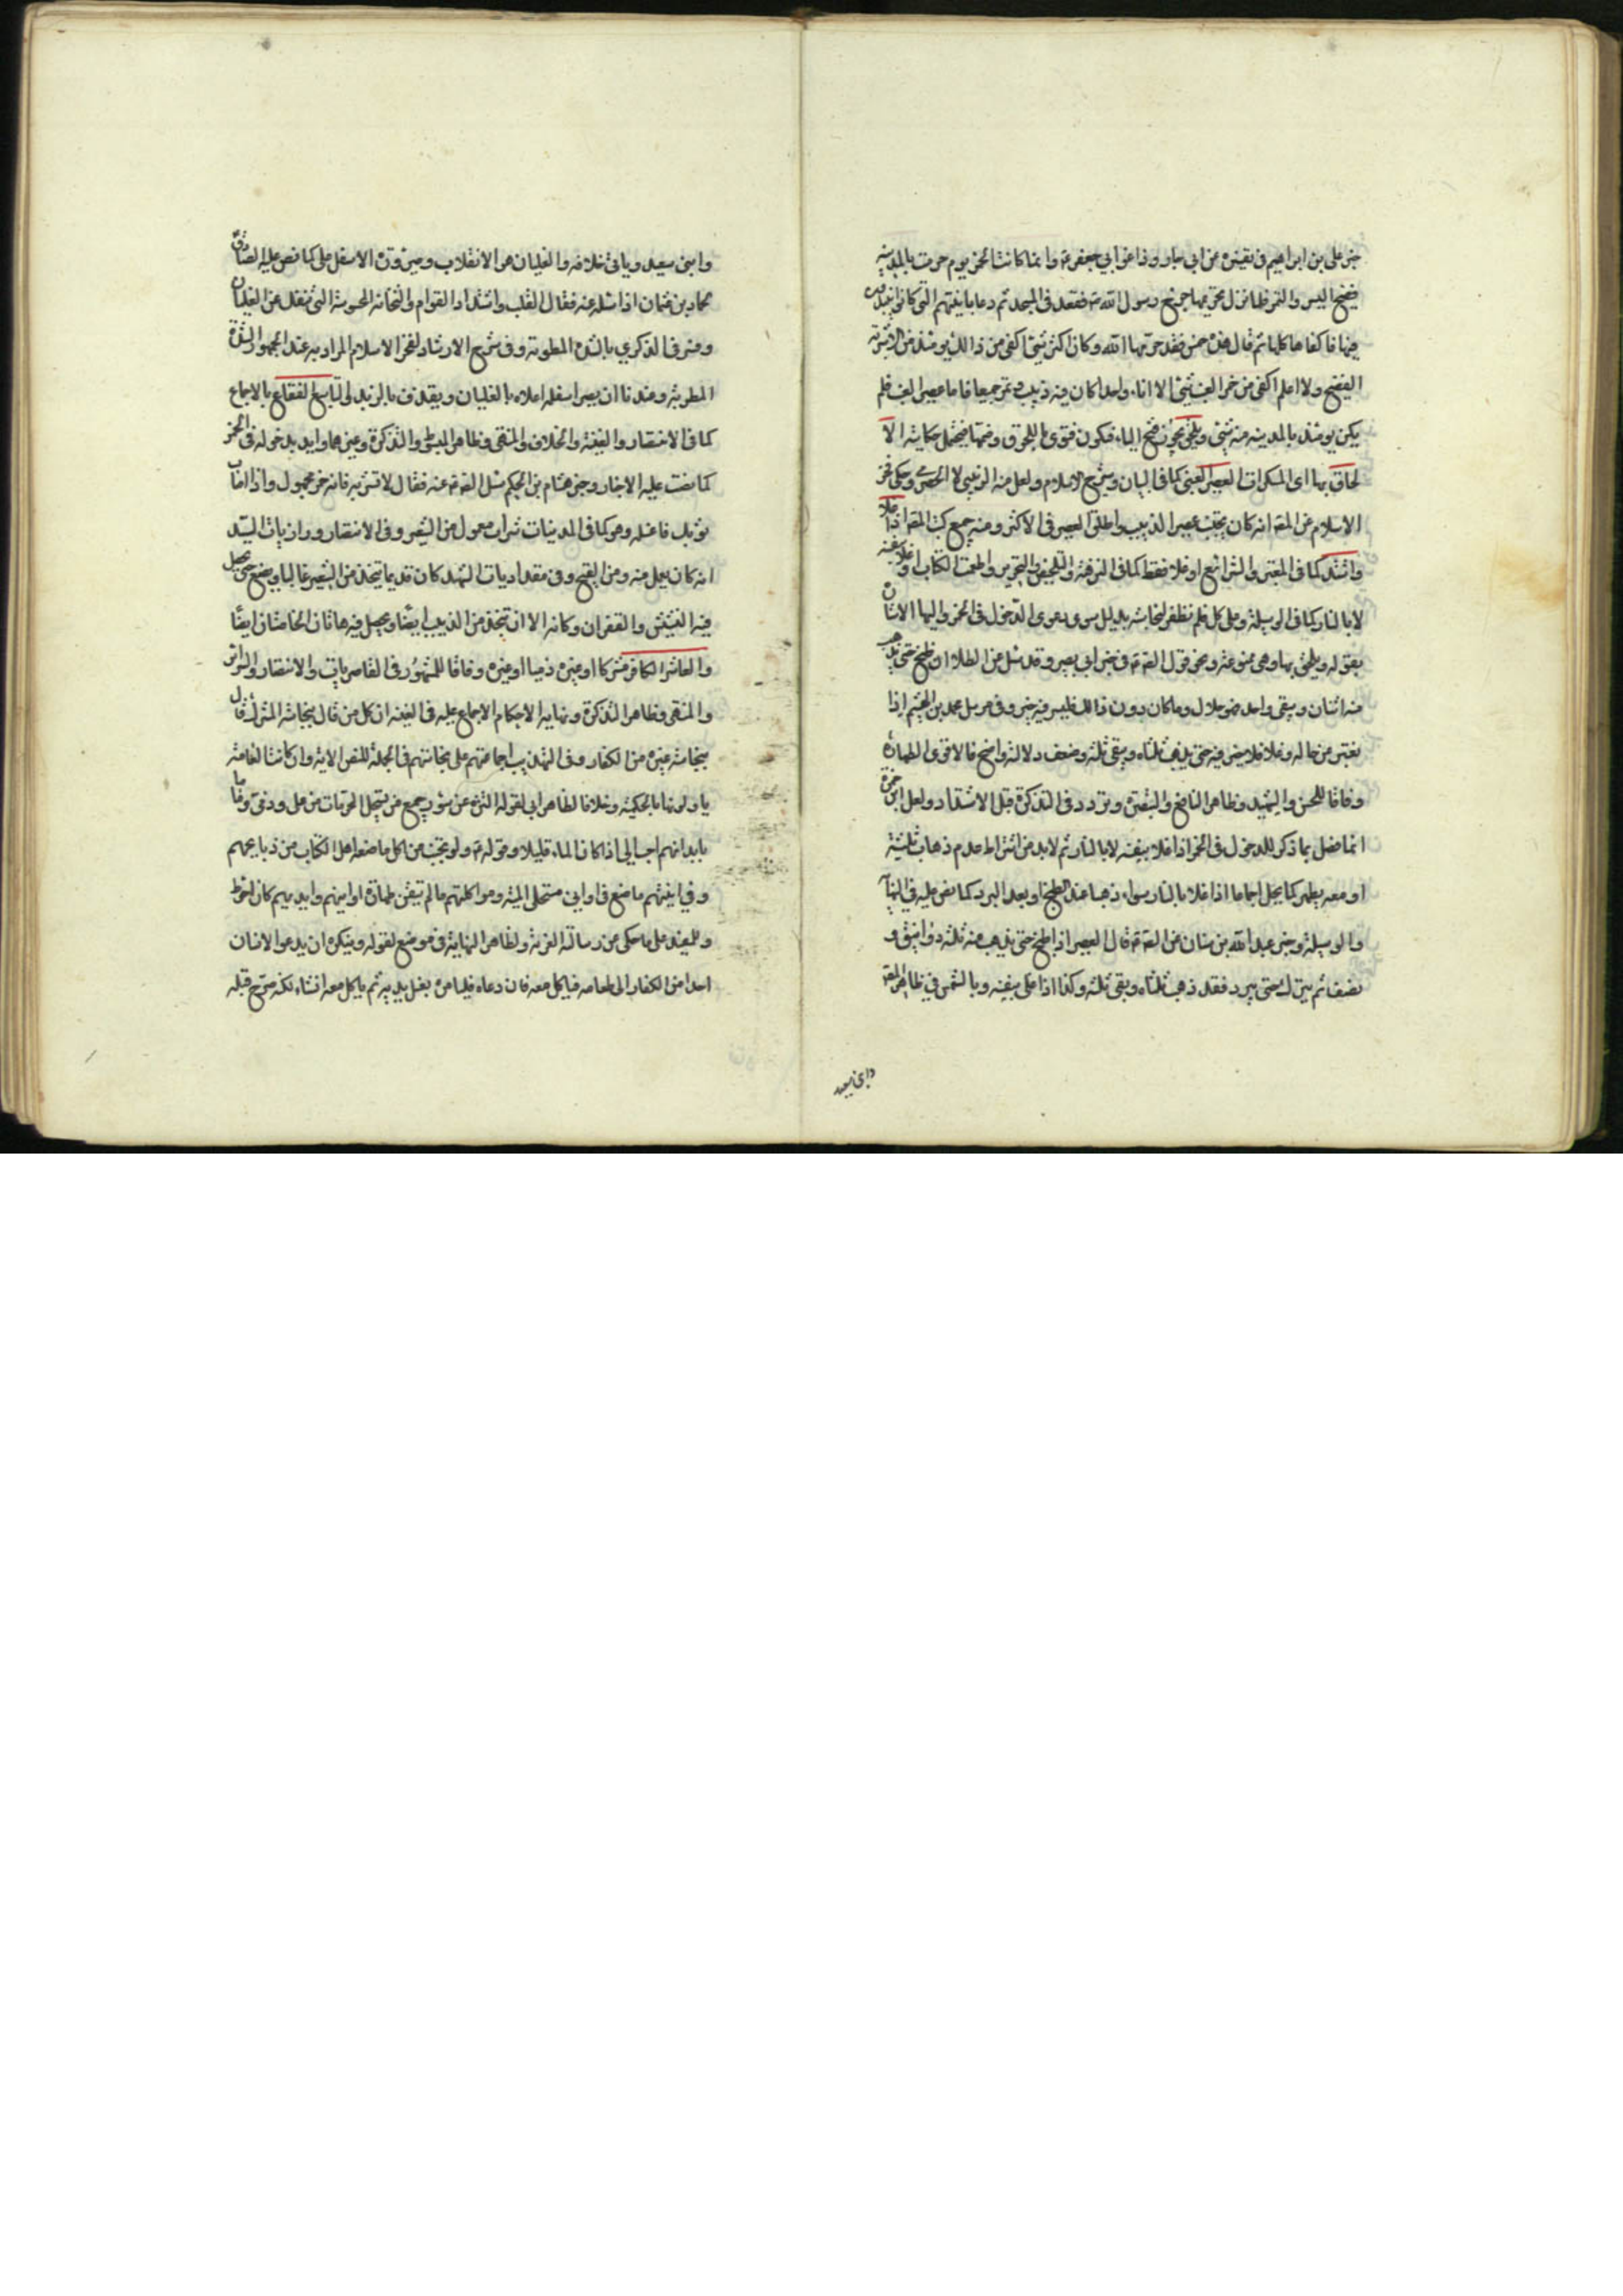 خبر علي بن ابراهيم في تفسيره عن ابي جارود عن ابي جعفر ع وانما كانت الخمر يوم حرمت بالمدينة
فضيخ البسر والتمر فلما نزل تحريمها خرج رسول الله ص فقعد في المسجد ثم دعا بانيتهم التي كانوا ينبذون
فيها فاكفاها كلها ثم قال هذه خمر فقد حرمها الله وكان اكثر شيء اكفى من ذالك يومئذ من الاشربة
الفضيخ ولا اعلم اكفى من خمر العنب شيء الا اناء واحد كان فيه زبيب وتمر جميعا فاما عصير العنب فلم
يكن يومئذ بالمدينة منه شيء ويلحق يجوز فتح الياء فيكون فتوى باللحوق وضمها فيحتمل حكاية الا
لحاق بها اى المسكرات العصير العنبي كما في البيان وشرح الاسلام ولعل منه الزبيبي لا الحصرمي وحكي فخر
الاسلام عن المصنف انه كان يجتنب عصير الزبيب واطلق العصير في الاكثر ومنه جميع كتب المصنف اذا غلا
واشتد كما في المعتبر والشرائع او غلا فقط كما في النزهة والتلخيص والتحرير واطعمة الكتاب او غلا بنفسه
لا بالنار كما في الوسيلة وعلى كل فلم نظفر لنجاسته بدليل سوى دعوى الدخول في الخمر واليها الاشارة
بقوله ويلحق بها وهي ممنوعة ونحو قول الصادق ع في خبر ابي بصير وقد سئل عن الطلا ان طبخ حتى يذهب
منه اثنان ويبقى واحد فهو حلال وما كان دون ذالك فليس فيه خير وفي مرسل محمد بن الهيثم اذا
تغير من حاله وغلا فلا خير فيه حتى يذهب ثلثاه ويبقى ثلثه وضعف دلالته واضح فالاقوى الطهارة
وفاقا للحسن والشهيد وظاهر النافع والتبصرة وتردد في التذكرة قبل الاشتداد ولعل ابن حمزة
انما فصل بما ذكر للدخول في الخمر اذا غلا بنفسه لا بالنار ثم لابد من اشتراط عدم ذهاب ثلثيه
او معه يطهر كما يحل اجماعا اذا غلا بالنار سواء ذهبا عند الطبخ او بعد البرد كما نص عليه في النهاية
والوسيلة وخبر عبد الله بن سنان عن الصادق ع قال العصير اذا طبخ حتى يذهب منه ثلثة دوانيق و
نصف ثم يترك حتى يبرد فقد ذهب ثلثاه وبقي ثلثه وكذا اذا غلى بنفسه وبالشمس في ظاهر المقنعة
وابن سعيد
وابن سعيد وياتي خلافه والغليان هو الانقلاب وصيرورة الاسفل على كما نص عليه الصادق
حماد بن عثمان اذا سئله عنه فقال القلب واشتداد القوام والثخانة المحسوسة التي تنفك عن الغليان
وفسر في الذكرى بالشدة المطربة وفي شرح الارشاد لفخر الاسلام المراد به عند الجمهور الشدة
المطربة وعندنا ان يصير اسفله اعلاه بالغليان ويقذف بالزبد والتاسع الفقاع بالاجماع
كما في الانتصار والغنية والخلاف والمنتهى وظاهر المبسوط والتذكرة وغيرهما وايد بدخوله في الخمر
كما نصت عليه الاخبار وخبر هشام بن الحكم سئل الصادق ع عنه فقال لا تشربه فانه خمر مجهول واذا اصاب
ثوبك فاغسله وهو كما في المدنيات شراب معمول من الشعير وفي الانتصار ورازيات السيد
انه كان يعمل منه ومن القمح وفي مقداديات الشهيد كان قديما يتخذ من الشعير غالبا ويضع حتى يحصل
فيه النشيش والقفزان وكانه الان يتخذ من الزبيب ايضا ويحصل فيه هاتان الخاصتان ايضا
والعاشر الكافر مشركا او غيره ذميا او غيره وفاقا للمشهور في الناصريات والانتصار والسرائر
والمنتهى وظاهر التذكرة ونهاية الاحكام الاجماع عليه في الغنية ان كل من قال بنجاسة المشرك قال
بنجاسة غيره من الكفار وفي التهذيب اجماعهم على نجاستهم في الجملة للنص الاية وان كانت العامة
ياولونها بالحكمية وخلافا لظاهر ابي لقوله التنزه عن سور جميع من يستحل المحرمات من ملى وذمي وما
بابدانهم احب الى اذا كان الماء قليلا وقوله ع ولو تجنب من اكل ما صنعه اهل الكتاب من ذبايحهم
وفي انيتهم ما صنع في اواني مستحلى الميتة ومواكلتهم ما لم يتيقن طهارة اوانيهم وايديهم كان احوط
وللمفيد على ما حكى عن رسالة الغرية ولظاهر النهاية في موضع لقوله ويكره ان يدعو الانسان
احدا من الكفار الى طعامه فياكل معه فان دعاه فليامره بغسل يديه ثم ياكل معه انشاء لكنه صرح قبله